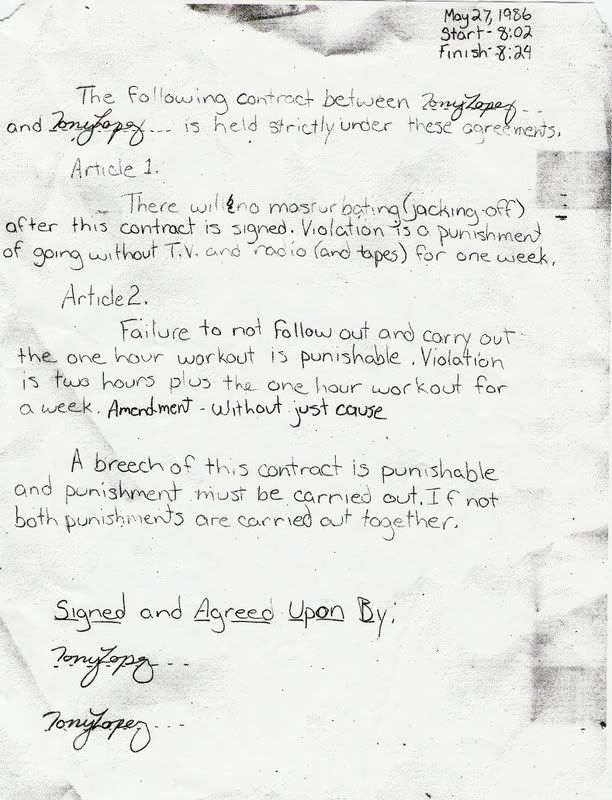 May 27, 1986
Start - 8:02
Finish - 8:24
The following contract between Tony Lopez...
and Tony Lopez... is held strictly under these agreements.
Article 1.
There will be no masturbating (jacking-off)
after this contract is signed. Violation is a punishment
of going without T.V. and radio (and tapes) for one week.
Article 2.
Failure to not follow out and carry out
the one hour workout is punishable. Violation
is two hours plus the one hour workout for
a week. Amendment - Without just cause
A breech of this contract is punishable
and punishment must be carried out. If not
both punishments are carried out together.
Signed and Agreed Upon By:
Tony Lopez...
Tony Lopez...